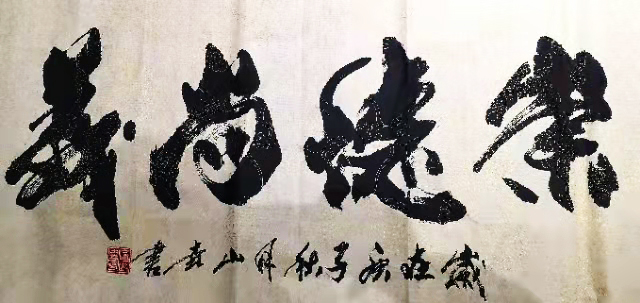 崇德尚義
歲在庚子秋月山書